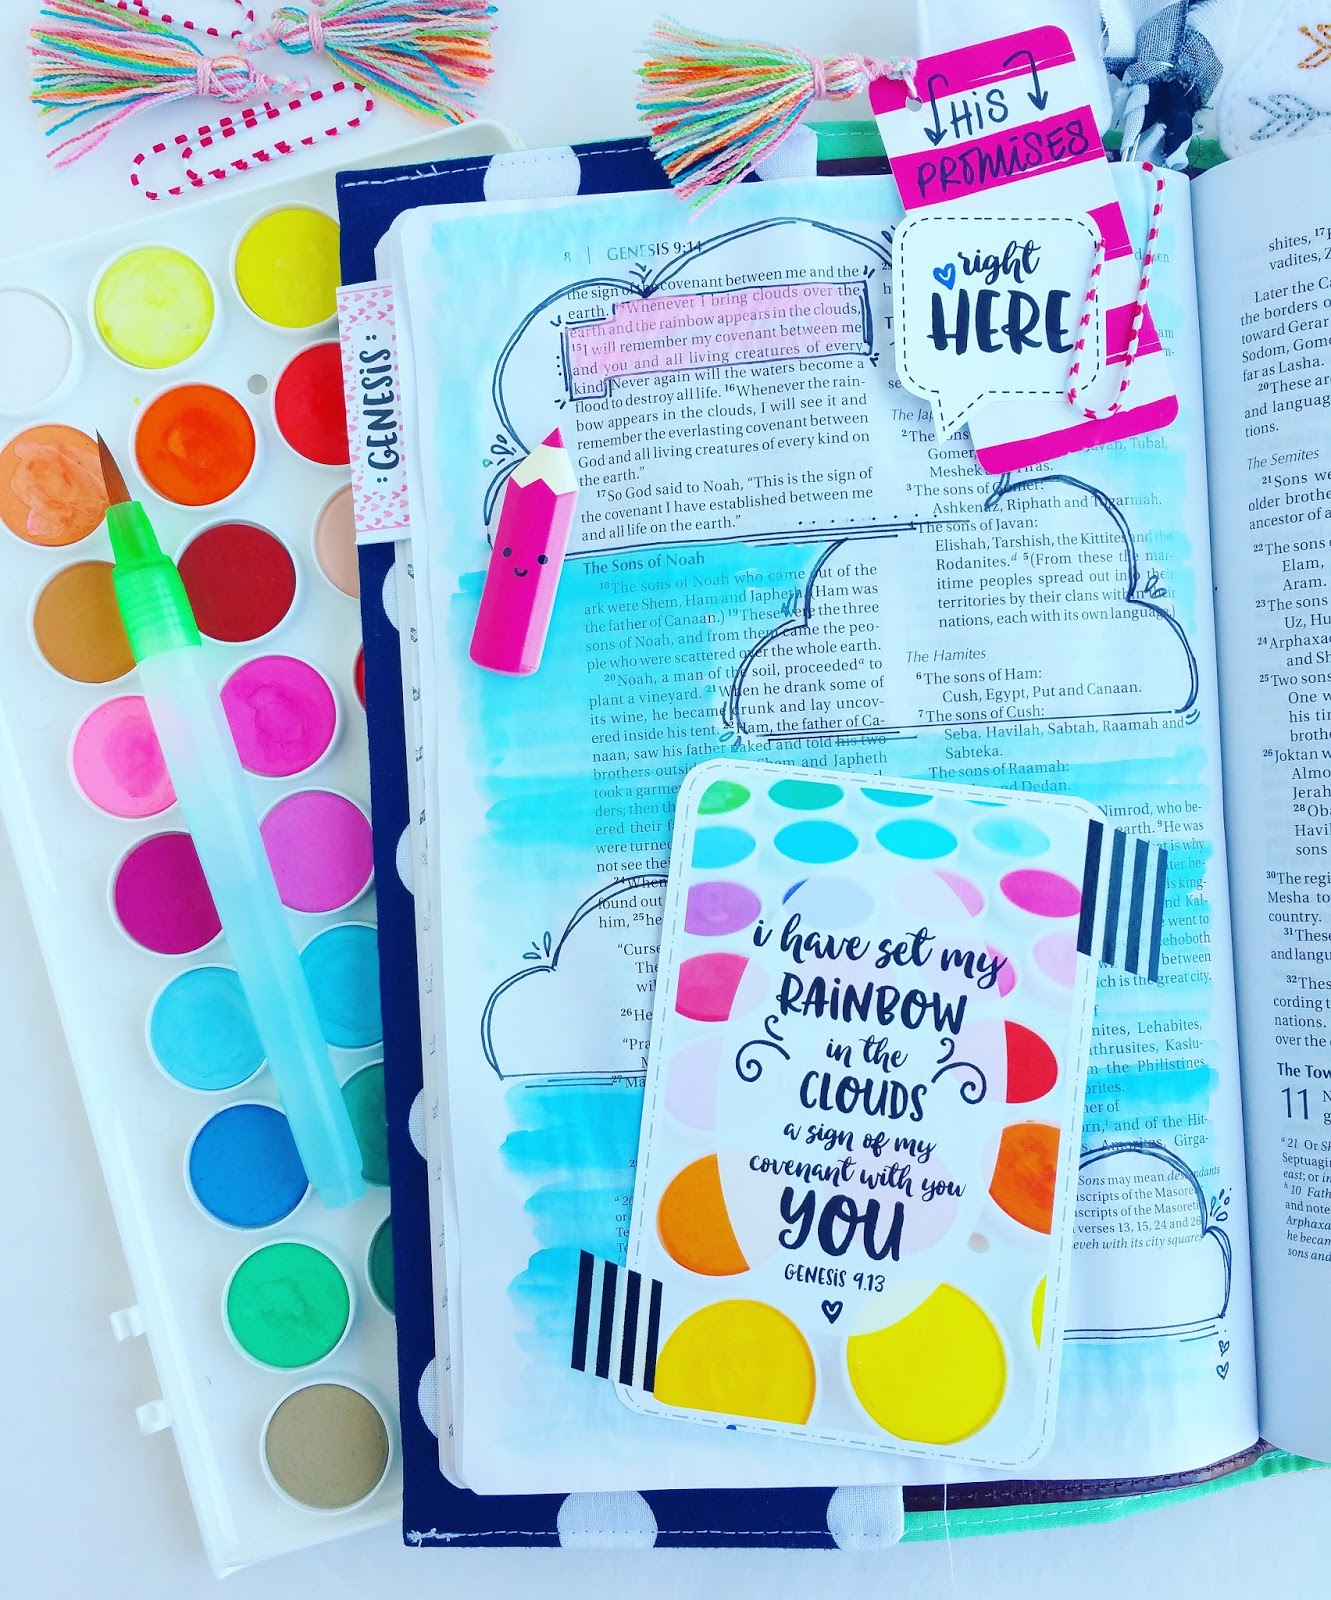 HIS
PROMISES
right
HERE
GENESIS
8 | GENESIS 9:14
the sign of the covenant between me and the
earth. 14Whenever I bring clouds over the
earth and the rainbow appears in the clouds,
15I will remember my covenant between me
and you and all living creatures of every
kind. Never again will the waters become a
flood to destroy all life. 16Whenever the rain-
bow appears in the clouds, I will see it and
remember the everlasting covenant between
God and all living creatures of every kind on
the earth.”
17So God said to Noah, “This is the sign of
the covenant I have established between me
and all life on the earth.”
The Sons of Noah
18The sons of Noah who came out of the
ark were Shem, Ham and Japheth. (Ham was
the father of Canaan.) 19These were the three
sons of Noah, and from them came the peo-
ple who were scattered over the whole earth.
20Noah, a man of the soil, proceeded a to
plant a vineyard. 21When he drank some of
its wine, he became drunk and lay uncov-
ered inside his tent. 22Ham, the father of Ca-
naan, saw his father naked and told his two
brothers outside. Shem and Japheth
took a garme
ders; then th
ered their f
were turned
not see thei
24When
found out
him, 25he
“Curse
The
wil
26He
“Pra
M
27Ma
The Jap
2The sons
Gomer, Javan, Tubal,
Meshek Tiras.
3The sons of Gomer:
Ashkenaz, Riphath and Togarmah.
4The sons of Javan:
Elishah, Tarshish, the Kittites and the
Rodanites.d 5(From these the mar-
itime peoples spread out into their
territories by their clans within their
nations, each with its own language.)
The Hamites
6The sons of Ham:
Cush, Egypt, Put and Canaan.
7The sons of Cush:
Seba, Havilah, Sabtah, Raamah and
Sabteka.
The sons of Raamah:
and Dedan.
Nimrod, who be-
earth. 9He was
at is why
re be-
is king-
nd Kal-
went to
hoboth
between
ch is the great city.
of
nites, Lehabites,
athrusites, Kaslu-
m the Philistines
orites.
her of
orn,i and of the Hit-
Amorites, Girga-
Sons may mean descendants
uscripts of the Masoret
verses 13, 15, 24 and 26
eveh with its city squares
i have set my
RAINBOW
in the
CLOUDS
a sign of my
covenant with you
YOU
GENESIS 9.13
shites, 17
vadites, Z
Later the Ca
the borders o
toward Gerar
Sodom, Gomo
far as Lasha.
20These are
and language
tions.
The Semites
21Sons we
older brothe
ancestor of a
22The sons o
Elam,
Aram.
23The sons o
Uz, Hu
24Arphaxad
and Sh
25Two sons
One w
his tim
brothe
26Joktan w
Almo
Jerah
28Oba
Havil
sons
30The regi
Mesha to
country.
31These
and langu
32These
cording t
nations.
over the e
The Tow
11 N
g
a 21 Or Sh
Septuagin
east; or in
h 10 Fath
and note
Arphaxa
he becam
sons and